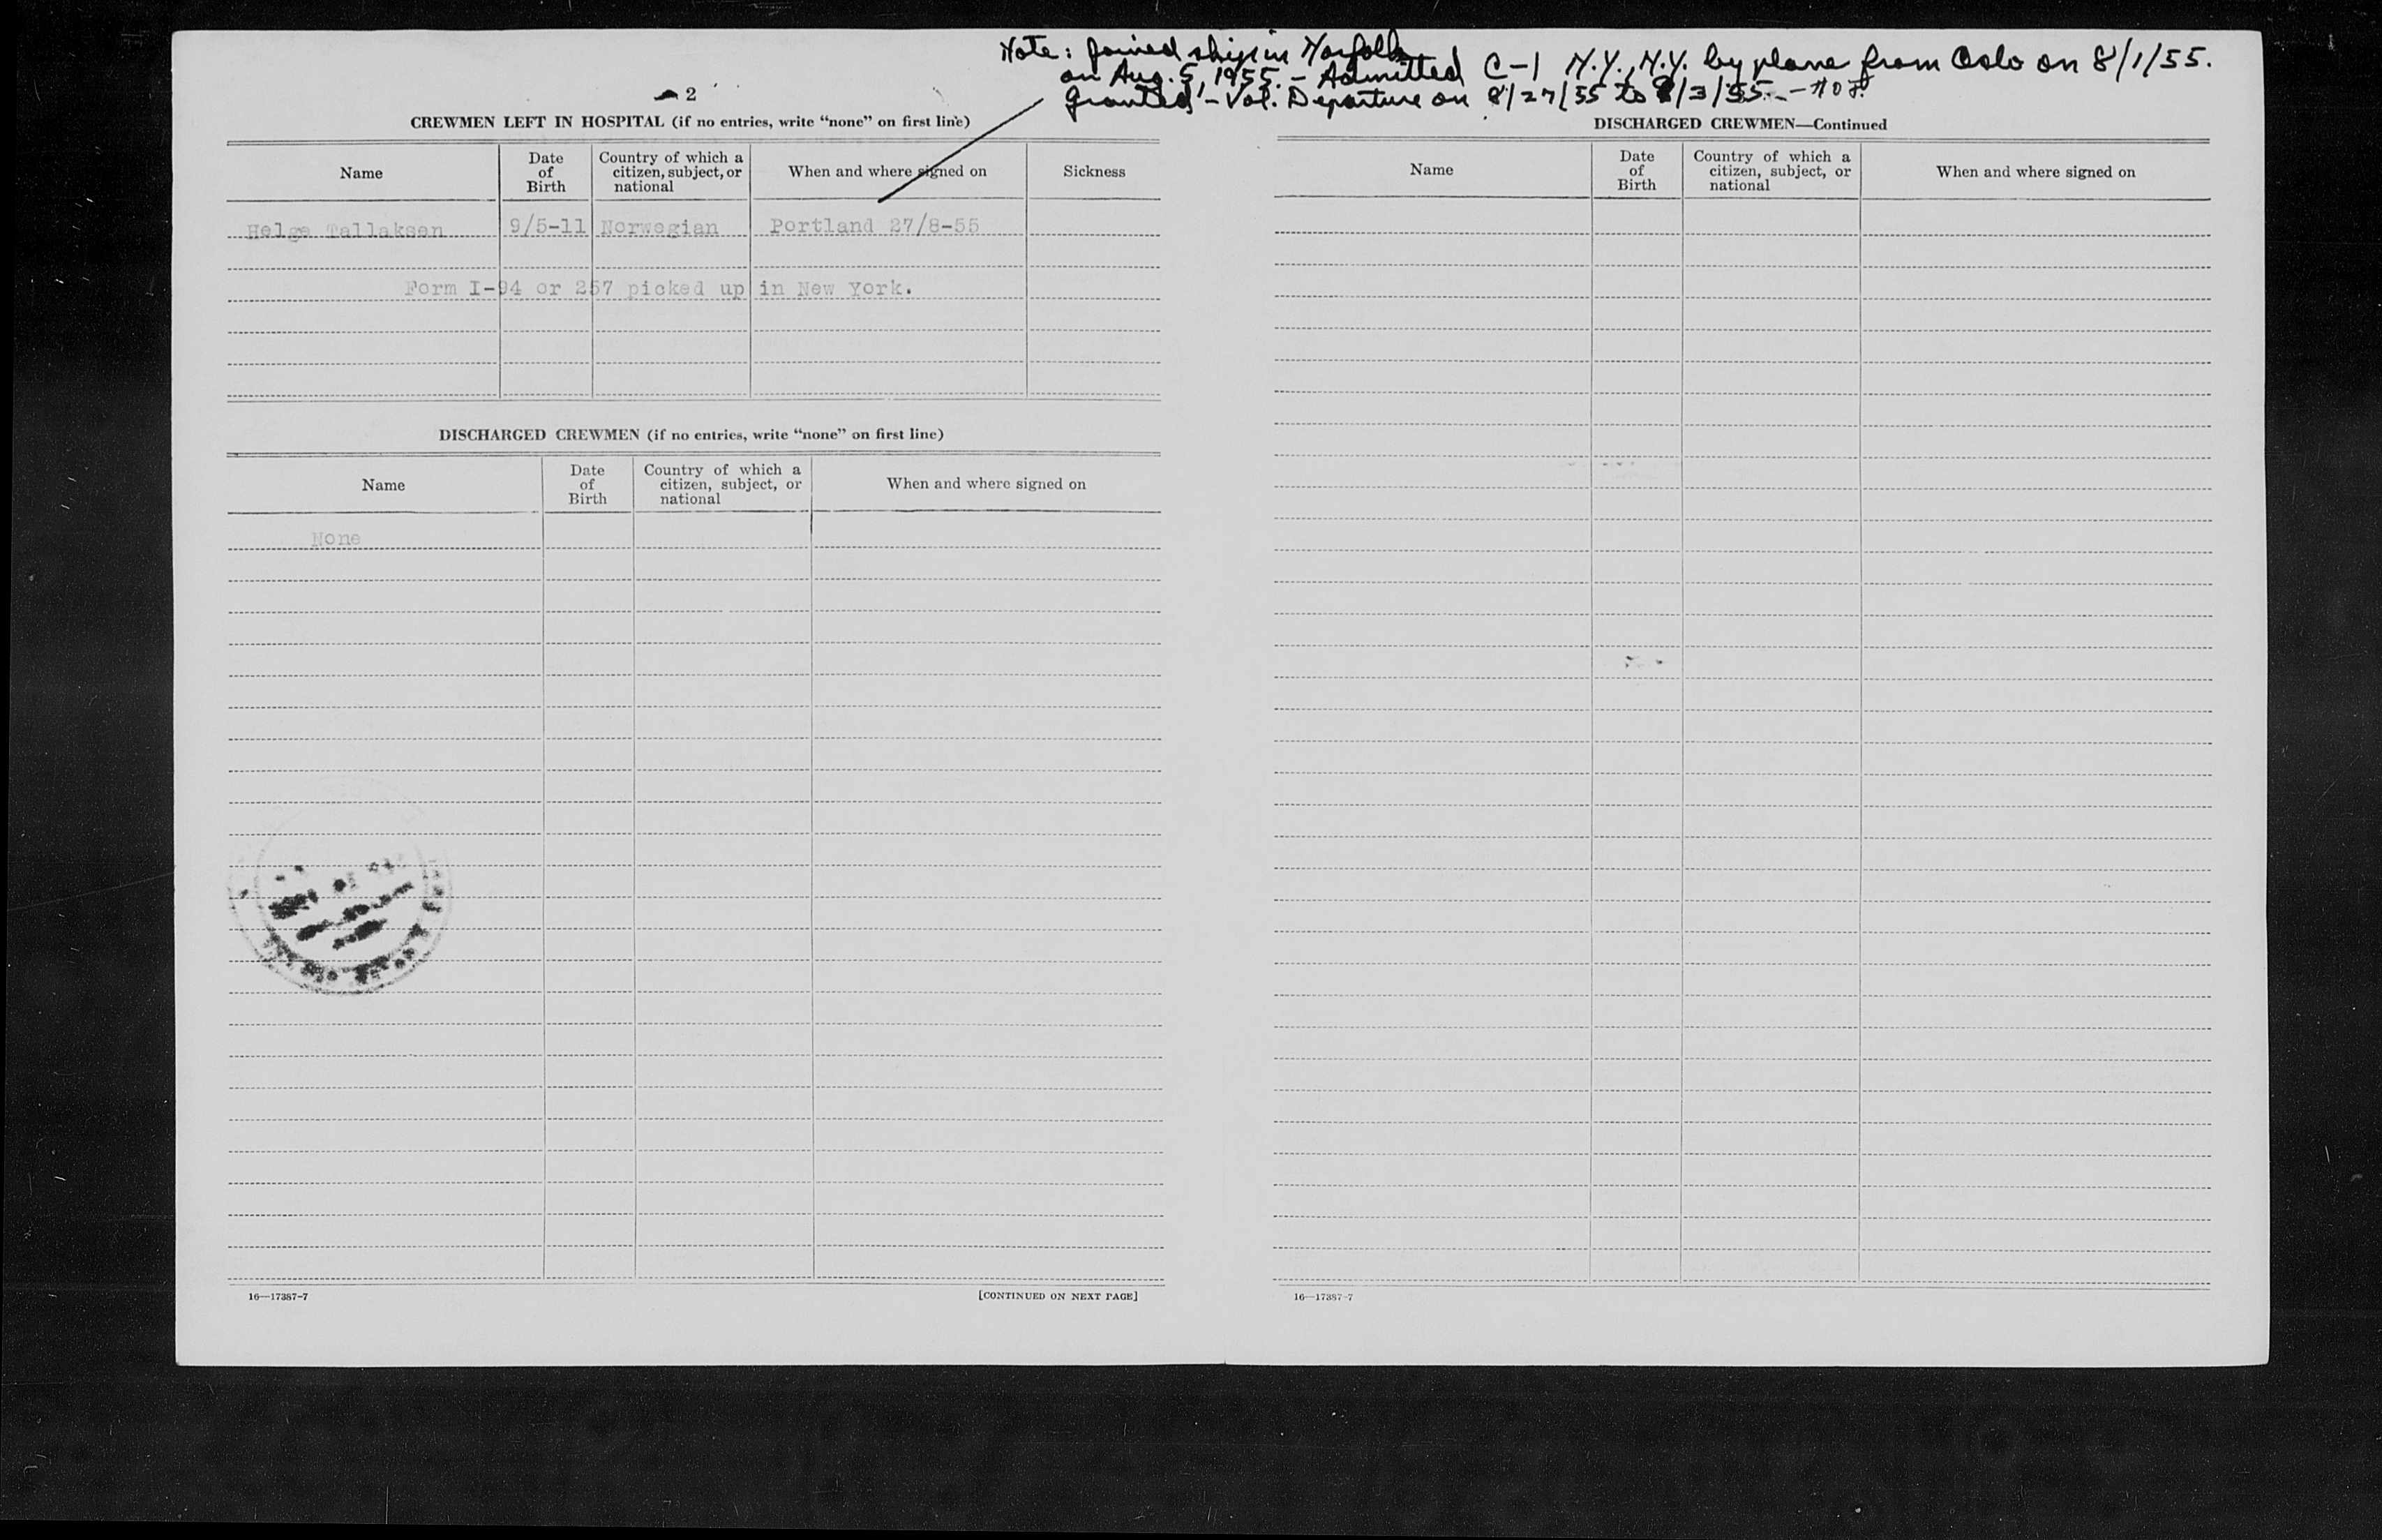 Note: Joined ship in Norfolk
on Aug. 5, 1955. – Admitted C-1 N.Y., N.Y. by plane from Oslo on 8/1/55.
Granted – Vol. Departure on 8/27/55 to /3/55 –
2
CREWMEN LEFT IN HOSPITAL (if no entries, write “none” on first line)
Name
Date of Birth
Country of which a citizen, subject, or national
When and where signed on
Sickness
Helge Tallaksen 9/5-11 Norwegian Portland 27/8-55
Form I-94 or 257 picked up in New York.
DISCHARGED CREWMEN (if no entries, write “none” on first line)
Name
Date of Birth
Country of which a citizen, subject, or national
When and where signed on
None
16—17387-7
[CONTINUED ON NEXT PAGE]
DISCHARGED CREWMEN—Continued
Name
Date of Birth
Country of which a citizen, subject, or national
When and where signed on
16—17387-7